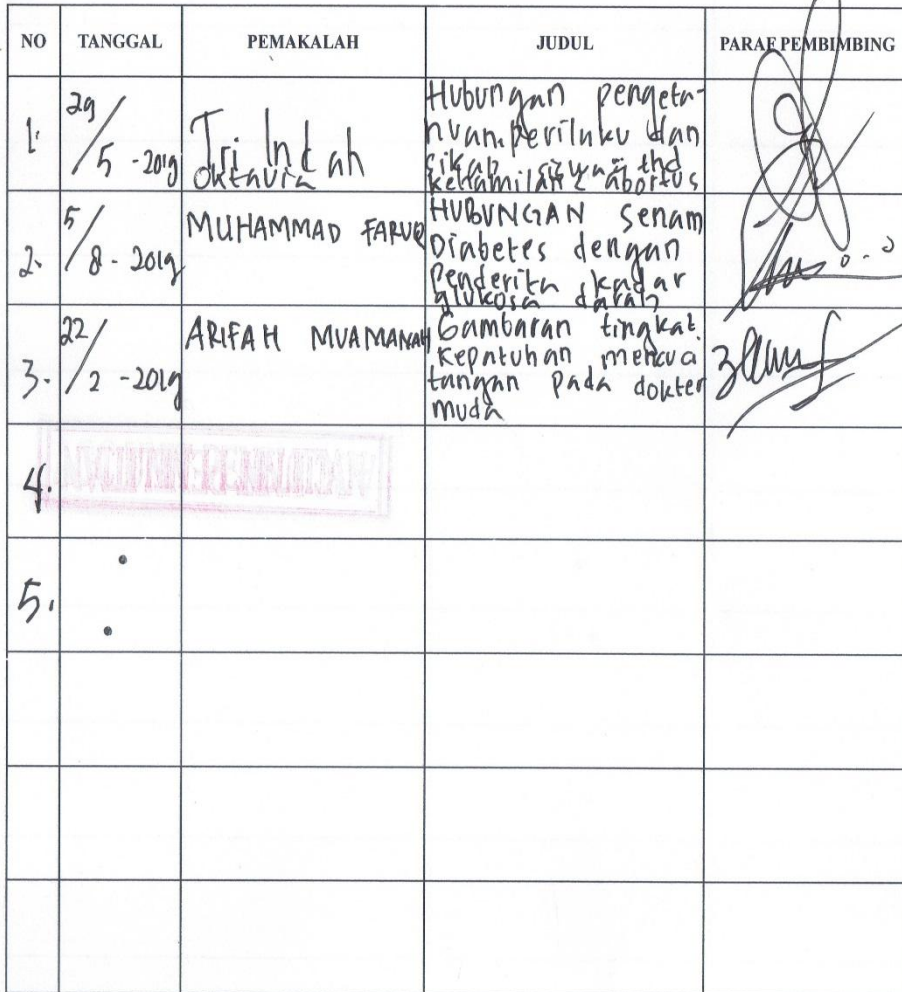 NO TANGGAL PEMAKALAH JUDUL PARAF PEMBIMBING
1. 29/5-2019 Tri Indah Oktavia Hubungan pengeta-
huan, perilaku dan
sikap siswa thd
kehamilan & abortus
2. 5/8-2019 MUHAMMAD FARUQ HUBUNGAN Senam
Diabetes dengan
Penderita kadar
glukosa darah
3. 22/2-2019 ARIFAH MUAMANAH Gambaran tingkat
Kepatuhan mencuci
tangan pada dokter
muda
4.
5.